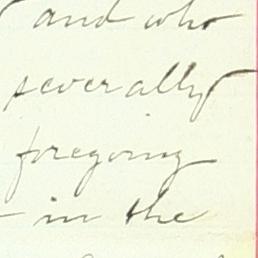 and who
severally
foregoing
in the